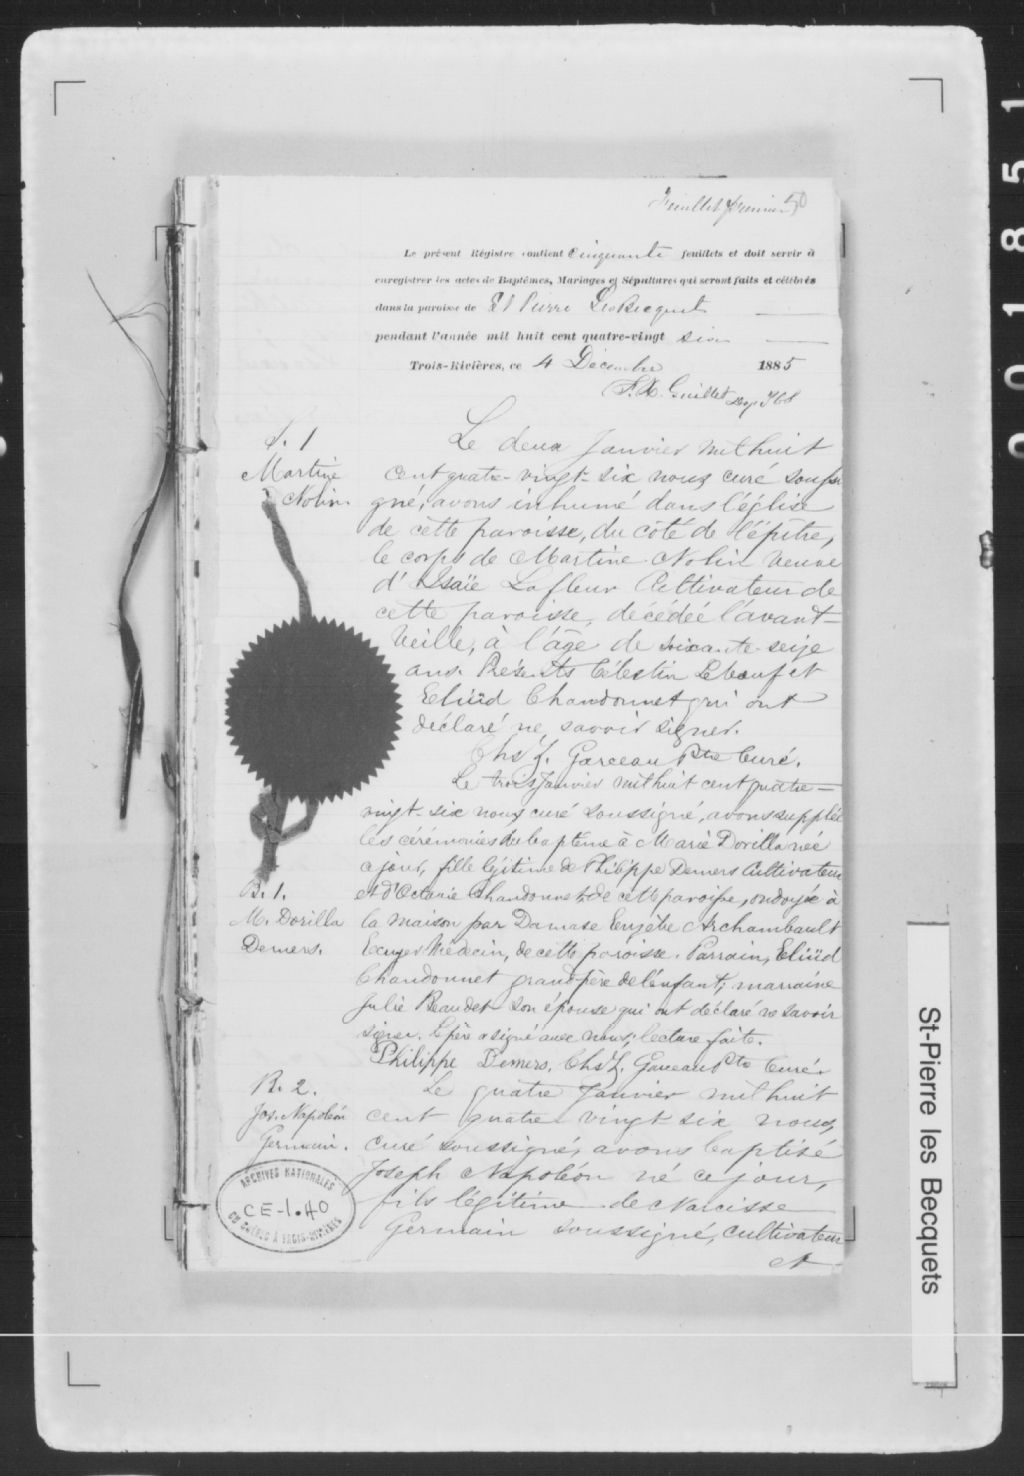 Feuillet premier 50
Le présent Régistre contient Cinquante feuillets et doit servir à
enregistrer les actes de Baptêmes, Mariages et Sépultures qui seront faits et célébrés
dans la paroisse de St Pierre Les Becquets
pendant l'année mil huit cent quatre-vingt six
Trois-Rivières, ce 4 Décembre 1885
F. X. Guillet
S. 1
Martine
Nolin
Le deux Janvier mil huit
cent quatre-vingt-six nous curé soussi
gné, avons inhumé dans l'église
de cette paroisse, du côté de l'épître,
le corps de Martine Nolin veuve
d'Isaïe Lafleur Cultivateur de
cette paroisse, décédée l'avant-
veille, à l'âge de soixante-seize
ans. Présents Célestin Lebeuf et
Eliüd Chandonnet qui ont
déclaré ne savoir signer.
Chs Z. Garceau Ptre Curé.
B. 1.
M. Dorilla
Demers.
Le trois Janvier mil huit cent quatre-
vingt-six nous curé soussigné, avons suppléé
les cérémonies du baptême à Marie Dorilla née
ce jour, fille légitime de Philippe Demers Cultivateur
et d'Octavie Chandonnet de cette paroisse, ondoyée à
la maison par Damase Eusèbe Archambault
Ecuyer Médecin, de cette paroisse. Parrain, Eliüd
Chandonnet grand-père de l'enfant; marraine
Julie Beaudet son épouse qui ont déclaré ne savoir
signer. Le père a signé avec nous, lecture faite.
Philippe Demers. Chs Z. Garceau Ptre Curé.
B. 2.
Jos. Napoléon
Germain.
Le quatre Janvier mil huit
cent quatre-vingt-six, nous,
curé soussigné, avons baptisé
Joseph Napoléon né ce jour,
fils légitime de Narcisse
Germain soussigné, cultivateur
et
ARCHIVES NATIONALES
CE-1.40
DU QUÉBEC À TROIS-RIVIÈRES
St-Pierre les Becquets